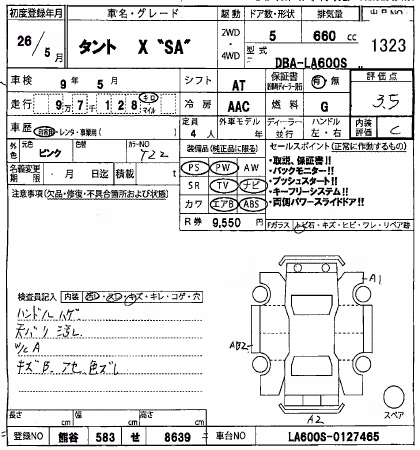 初度登録年月 車名・グレード 駆動 ドア数・形状 排気量 出品NO
26/5月 タント X "SA" 2WD・4WD 5 660 cc 1323
型式 DBA-LA600S
車検 9年 5月 シフト AT 保証書 有・無 評価点
走行 9万7千128 キロ マイル 冷房 AAC 燃料 G 3.5
車歴 自家用・レンタ・事業用( ) 定員 4人 外車モデル 年 ディーラー・並行 ハンドル 左・右 内装評価 C
外色 元色 ピンク 色替 カラーNO T22
装備品(純正品に限る) セールスポイント(正常に作動するもの)
名義変更期限 ・ 月 日迄 積載 t
PS PW AW
SR TV ナビ
カワ エアB ABS
R券 9,550 円
・取説、保証書!!
・バックモニター!!
・プッシュスタート!!
・キーフリーシステム!!
・両側パワースライドドア!!
注意事項(欠品・修復・不具合箇所および状態)
Fガラス トビ石・キズ・ヒビ・ワレ・リペア跡
検査員記入 内装 キレ・コゲ・穴
ハンドルハゲ
天バリ ヨゴレ
W/C A
キズB アセ 色ズレ
A1
A2
スペア
長さ cm 幅 cm 高さ cm
登録NO 熊谷 583 せ 8639 車台NO LA600S-0127465